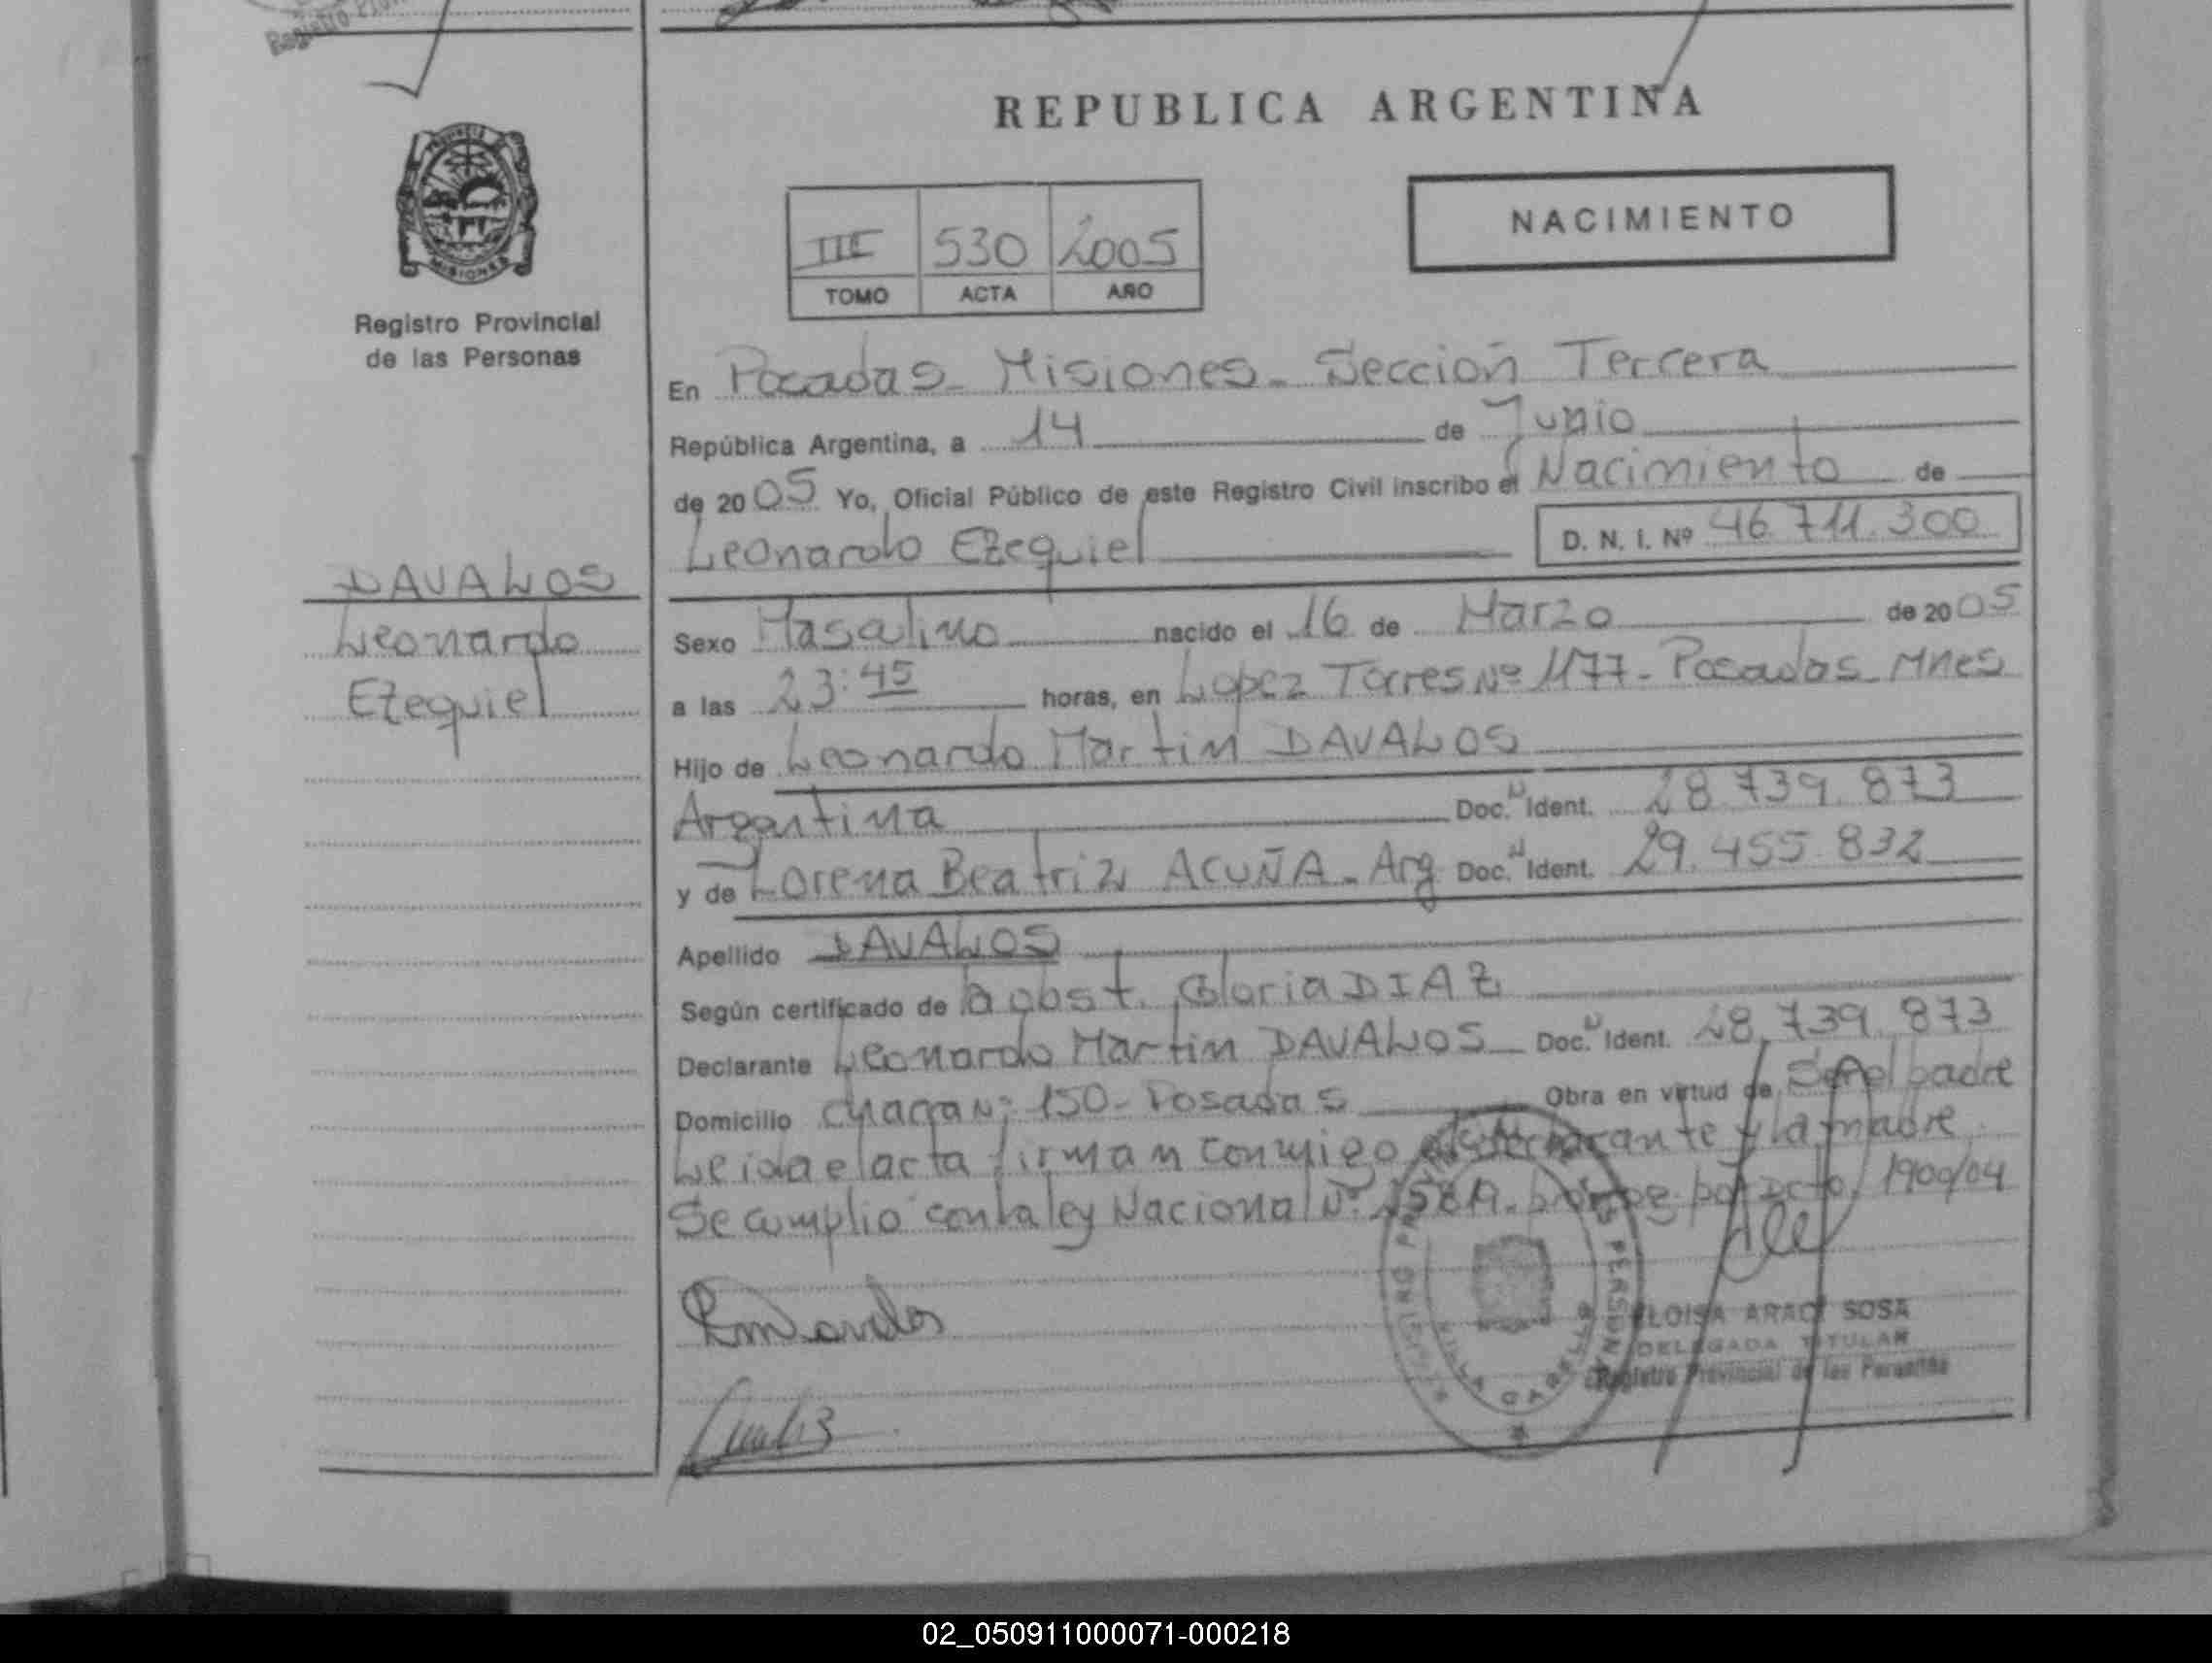 Registro
REPUBLICA ARGENTINA
PROVINCIA
MISIONES
Registro Provincial
de las Personas
NACIMIENTO
III 530 2005
TOMO ACTA AÑO
En Posadas - Misiones - Sección Tercera
República Argentina, a 14 de Junio
de 2005 Yo, Oficial Público de este Registro Civil inscribo el Nacimiento de
Leonardo Ezequiel D. N. I. Nº 46.711.300
DAVALOS
Leonardo
Ezequiel
Sexo Masculino nacido el 16 de Marzo de 2005
a las 23:45 horas, en Lopez Torres Nº 1177 - Posadas Mnes
Hijo de Leonardo Martin DAVALOS
Argentina Doc. N Ident. 28.739.873
y de Lorena Beatriz ACUÑA - Arg Doc. N Ident. 29.455.832
Apellido DAVALOS
Según certificado de la obst. Gloria DIAZ
Declarante Leonardo Martin DAVALOS Doc. N Ident. 28.739.873
Domicilio Chacra Nº 150 - Posadas Obra en virtud de Ser el padre
Leida el acta firman conmigo el declarante y la madre
Se cumplio con la ley Nacional Nº por Dcto. 1900/04
ELOISA ARACI SOSA
DELEGADA TITULAR
Registro Provincial de las Personas
02_050911000071-000218